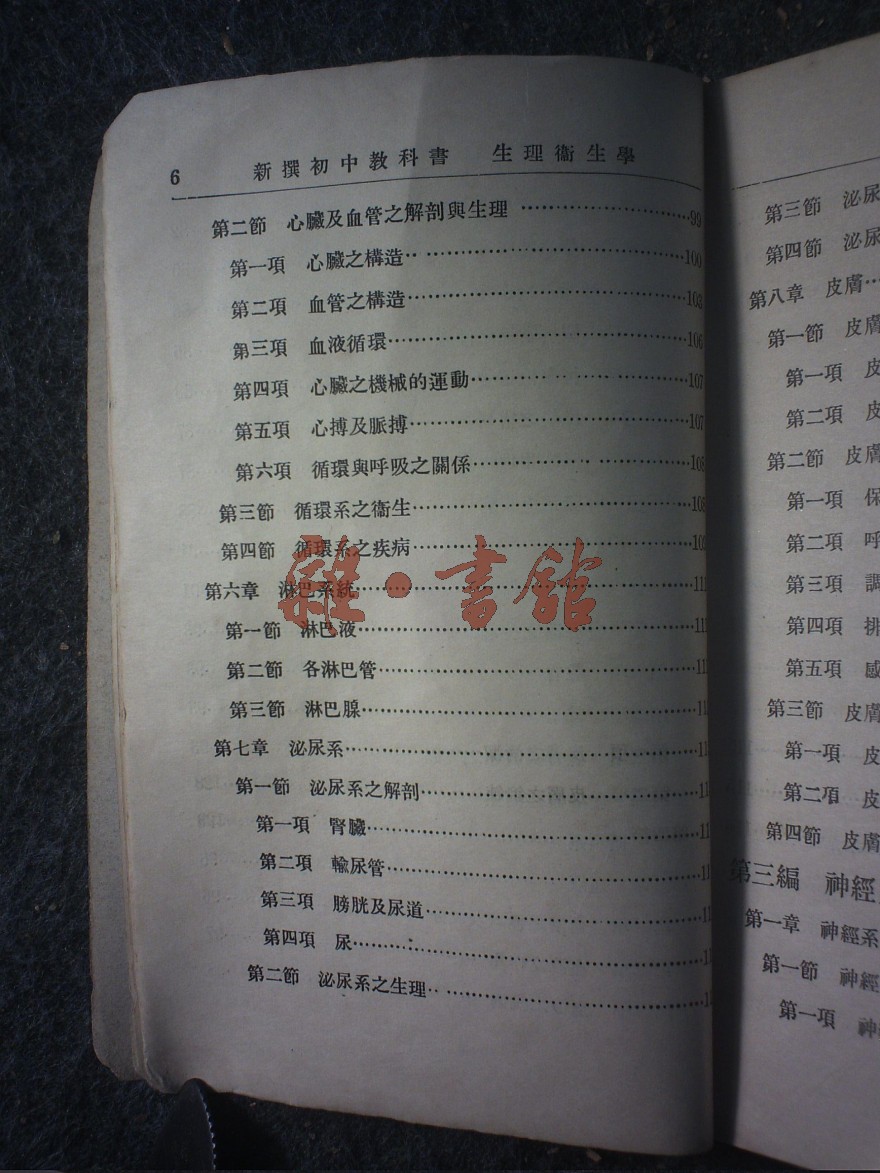 6 新撰初中教科書 生理衞生學
第二節 心臟及血管之解剖與生理 ……99
第一項 心臟之構造……100
第二項 血管之構造……103
第三項 血液循環……106
第四項 心臟之機械的運動……107
第五項 心搏及脈搏……107
第六項 循環與呼吸之關係……108
第三節 循環系之衞生……108
第四節 循環系之疾病……10
第六章 淋巴系統……111
第一節 淋巴液……11
第二節 各淋巴管……11
第三節 淋巴腺……11
第七章 泌尿系……11
第一節 泌尿系之解剖……11
第一項 腎臟……11
第二項 輸尿管……11
第三項 膀胱及尿道……1
第四項 尿……1
第二節 泌尿系之生理……1
雜·書館
第三節 泌尿
第四節 泌尿
第八章 皮膚…
第一節 皮膚
第一項 皮
第二項 皮
第二節 皮膚
第一項 保
第二項 呼
第三項 調
第四項 排
第五項 感
第三節 皮膚
第一項 皮
第二項 皮
第四節 皮膚
第三編 神經
第一章 神經系
第一節 神經
第一項 神